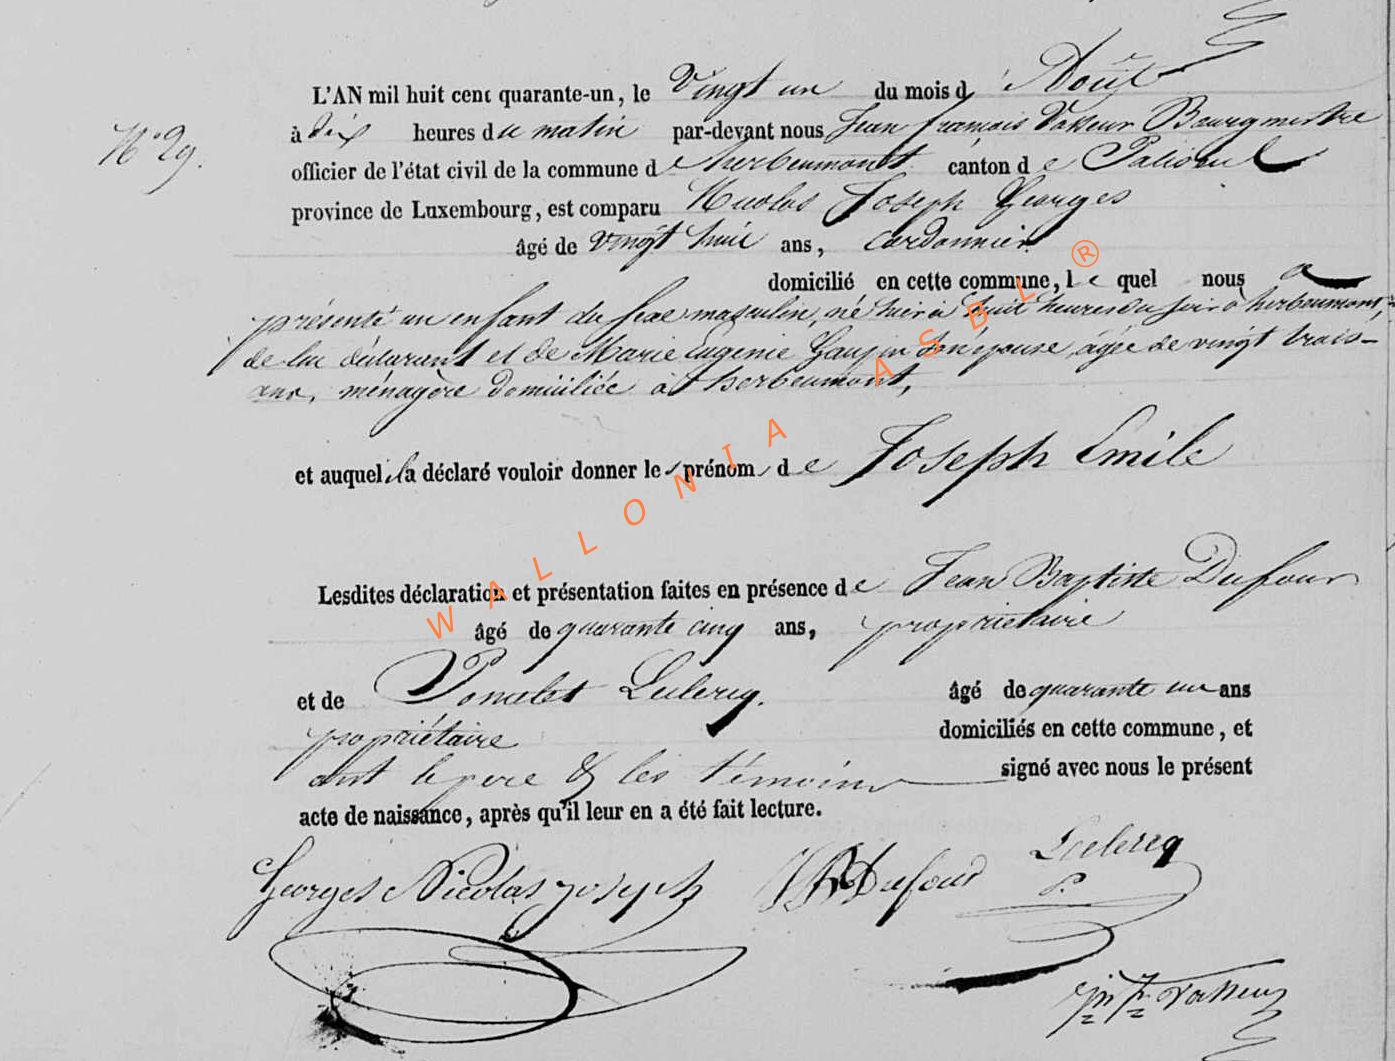 L'AN mil huit cent quarante-un, le Vingt un du mois d'Août
N° 29.
à dix heures du matin par-devant nous Jean françois Vasseur Bourgmestre
officier de l'état civil de la commune de herbeumont canton de Paliseul
province de Luxembourg, est comparu Nicolas Joseph Georges
âgé de vingt huit ans, cordonnier
domicilié en cette commune, lequel nous a
présenté un enfant du sexe masculin, né hier à huit heures du soir à herbeumont,
de lui déclarant et de Marie Eugénie son épouse âgée de vingt trois
ans, ménagère domiciliée à herbeumont,
et auquel il a déclaré vouloir donner les prénoms de Joseph Emile
Lesdites déclaration et présentation faites en présence de Jean Baptiste Dufour
âgé de quarante cinq ans, propriétaire
et de Poncelet Leclercq. âgé de quarante un ans
propriétaire domiciliés en cette commune, et
ont le père & les témoins signé avec nous le présent
acte de naissance, après qu'il leur en a été fait lecture.
Georges Nicolas joseph Dufour Leclercq
P.
Vasseur
WALLONIA ASBL ®